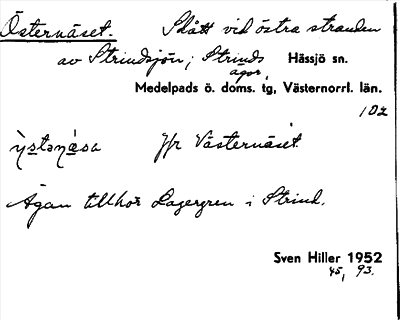 Östernäset. Slått vid östra stranden
av Strindsjön; Strinds Hässjö sn.
ägor.
Medelpads ö. doms. tg, Västernorrl. län.
102
Jfr Västernäset
Ägan tillhör Lagergren i Strind.
Sven Hiller 1952
45, 93.